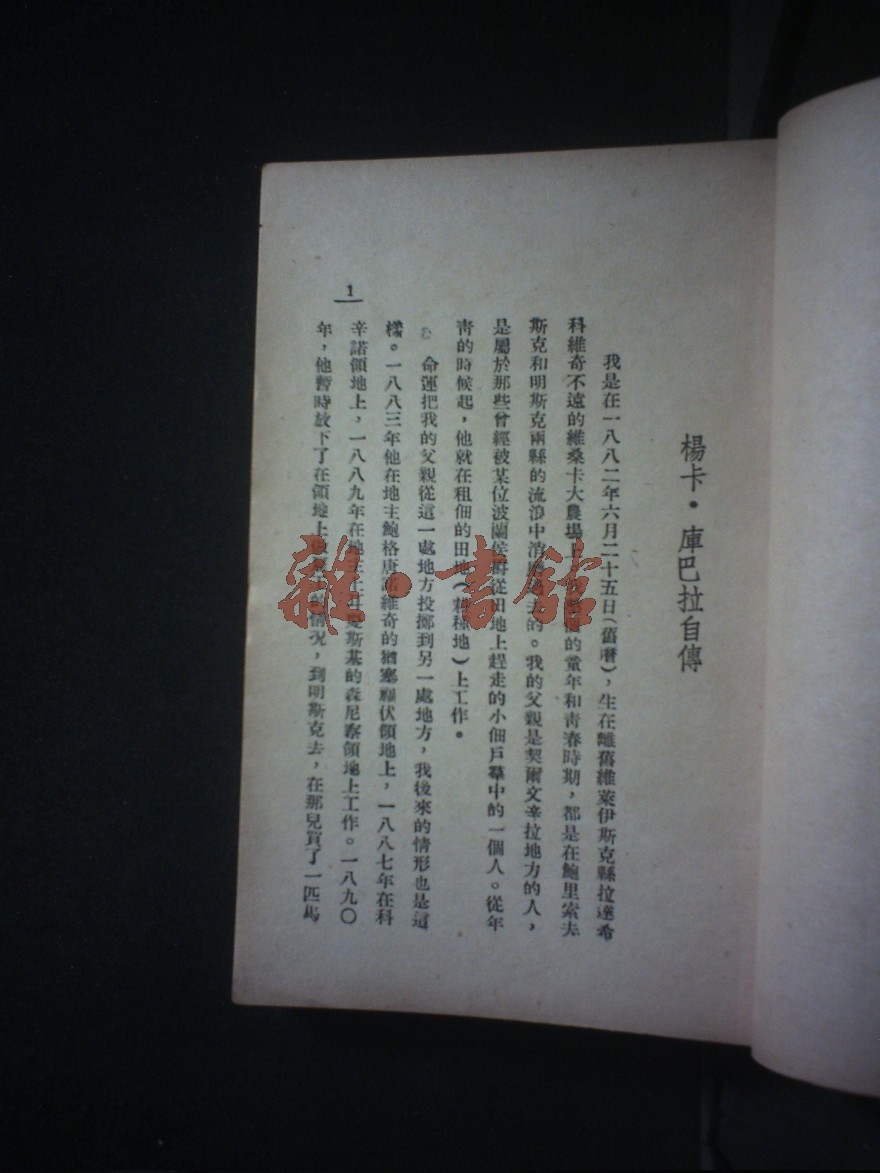 楊卡·庫巴拉自傳
我是在一八八二年六月二十五日(舊曆),生在離舊維萊伊斯克縣拉達希
科維奇不遠的維桑卡大農場上 的童年和青春時期,都是在鮑里索夫
斯克和明斯克兩縣的流浪中消 過去的。我的父親是契爾文辛拉地方的人,
是屬於那些曾經被某位波蘭侯爵從田地上趕走的小佃戶羣中的一個人。從年
青的時候起,他就在租佃的田地( 種地)上工作。
命運把我的父親從這一處地方投擲到另一處地方,我後來的情形也是這
樣。一八八三年他在地主鮑格唐諾維奇的猶塞 伏領地上,一八八七年在科
辛諾領地上,一八八九年在地主 斯基的森尼察領地上工作。一八九〇
年,他暫時放下了在領地上做 的情況,到明斯克去,在那兒買了一匹馬
1
雜·書館